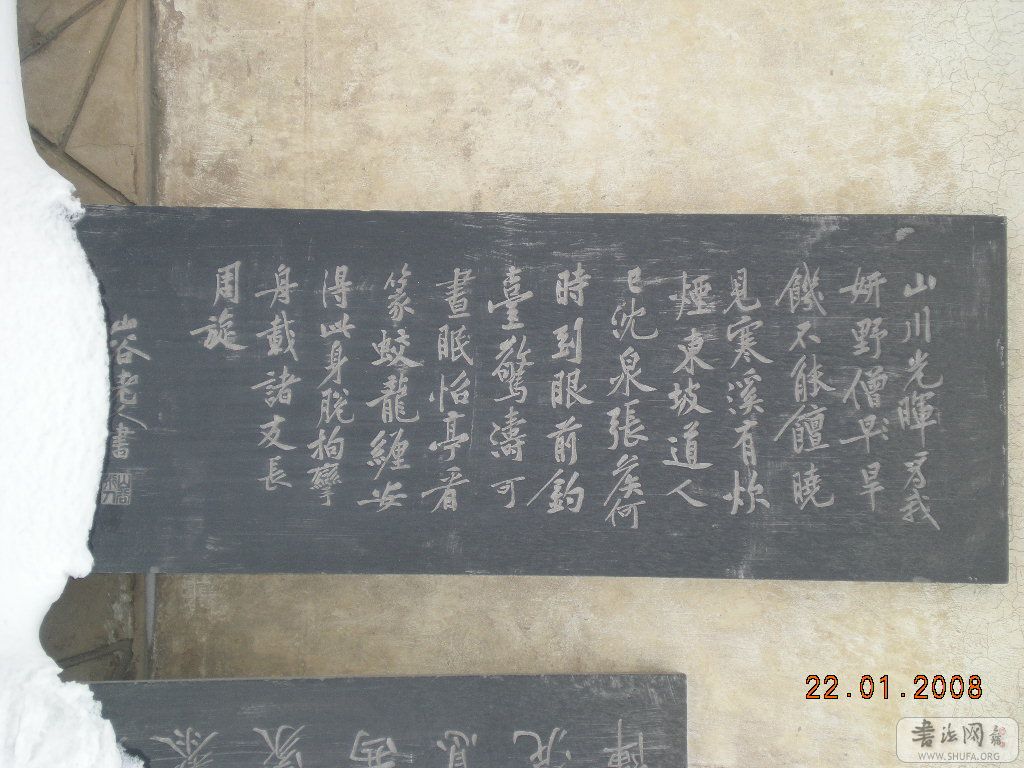 山川光暉為我
妍野僧早旱
饑不能饘曉
見寒溪有炊
煙東坡道人
已沈泉張侯何
時到眼前釣
臺驚濤可
晝眠怡亭看
篆蛟龍纏安
得此身脫拘攣
舟載諸友長
周旋
山谷老人書
22.01.2008
书法网
WWW.SHUFA.ORG